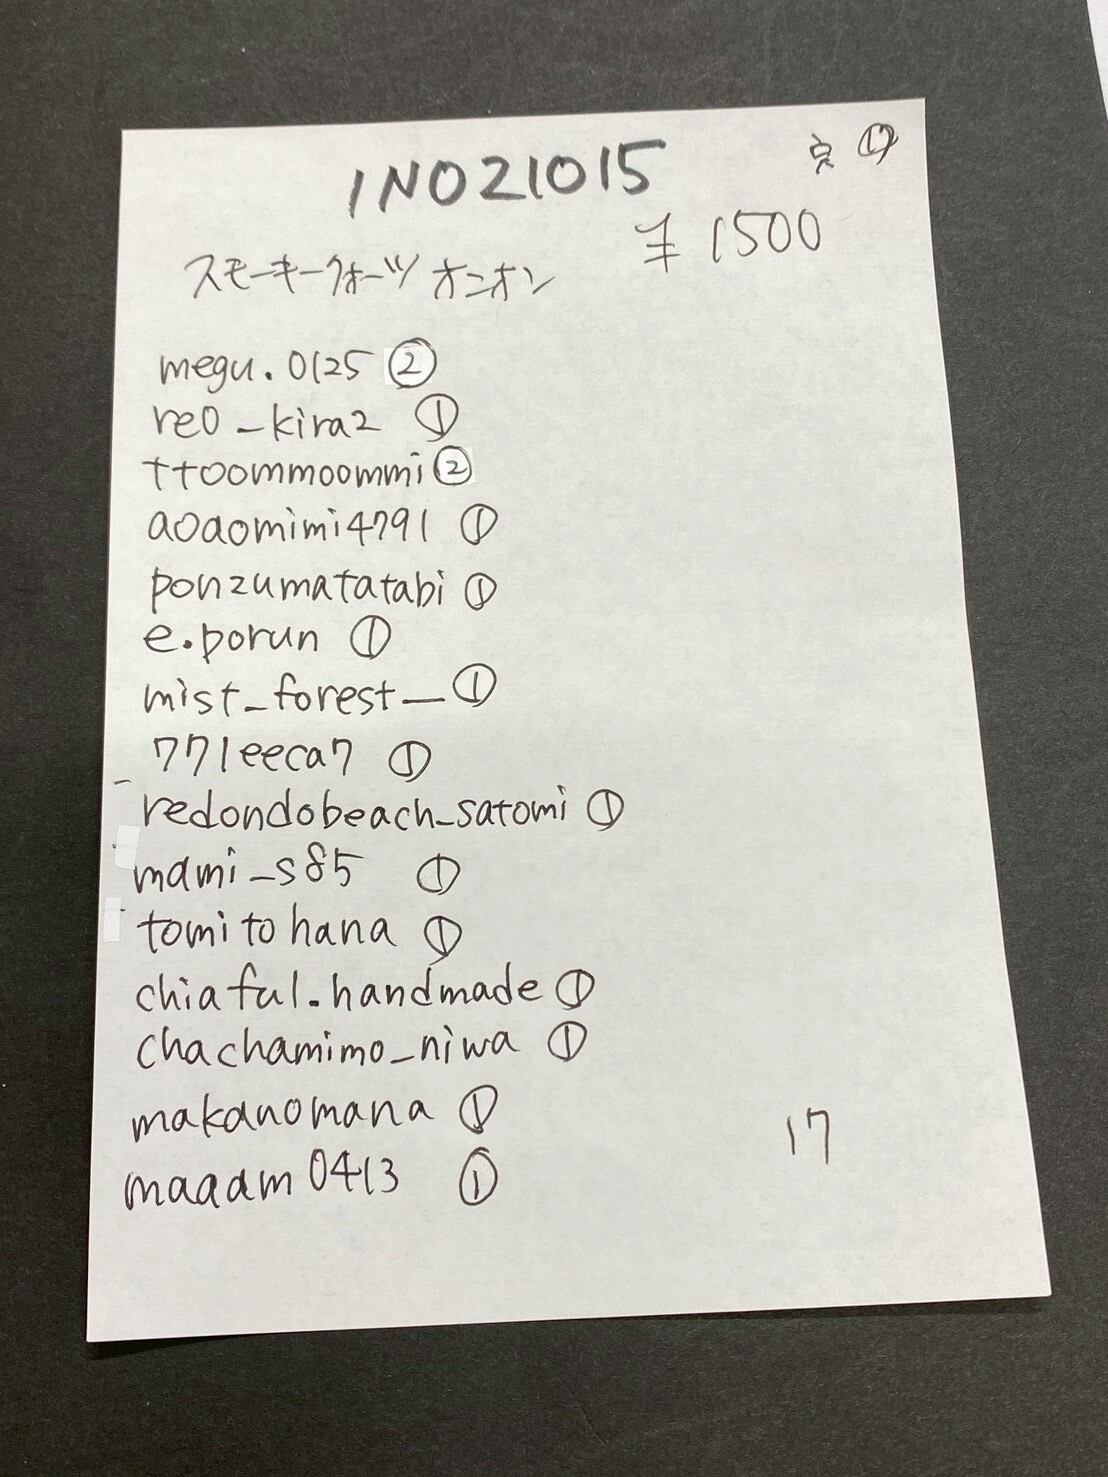 1N021015
⑰
¥1500
スモーキークォーツ オニオン
megu.0125 ②
re0_kira2 ①
ttoommoommi ②
aoaomimi4791 ①
ponzumatatabi ①
e.porun ①
mist_forest_ ①
771eeca7 ①
redondobeach_satomi ①
mami_s85 ①
tomito hana ①
chiaful.handmade ①
chachamimo_niwa ①
makanomana ①
maaam0413 ①
17